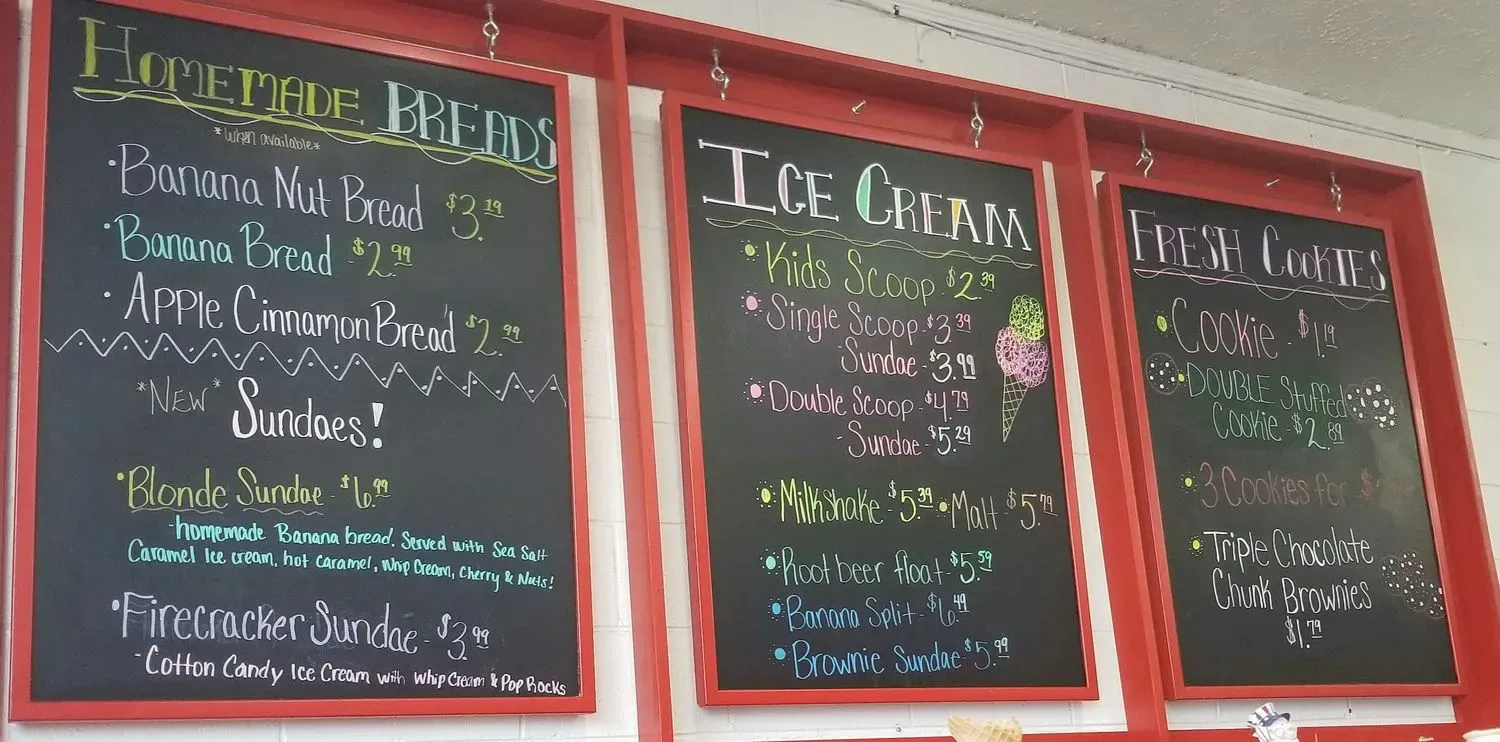 HOMEMADE BREADS
*when available*
•Banana Nut Bread $3.19
•Banana Bread $2.99
•Apple Cinnamon Bread $2.99
*NEW* Sundaes!
•Blonde Sundae - $6.99
-homemade Banana bread. Served with Sea Salt
Caramel Ice cream, hot caramel, whip Cream, Cherry & Nuts!
•Firecracker Sundae - $3.99
-Cotton Candy Ice Cream with whip Cream & Pop Rocks
ICE CREAM
•Kids Scoop - $2.39
•Single Scoop - $3.39
-Sundae - $3.99
•Double Scoop - $4.79
-Sundae - $5.29
•Milkshake - $5.39 •Malt - $5.79
•Root beer float - $5.59
•Banana Split - $6.49
•Brownie Sundae $5.99
FRESH COOKIES
•Cookie - $1.19
•DOUBLE Stuffed
Cookie - $2.89
•3 Cookies for $
•Triple Chocolate
Chunk Brownies
$1.79